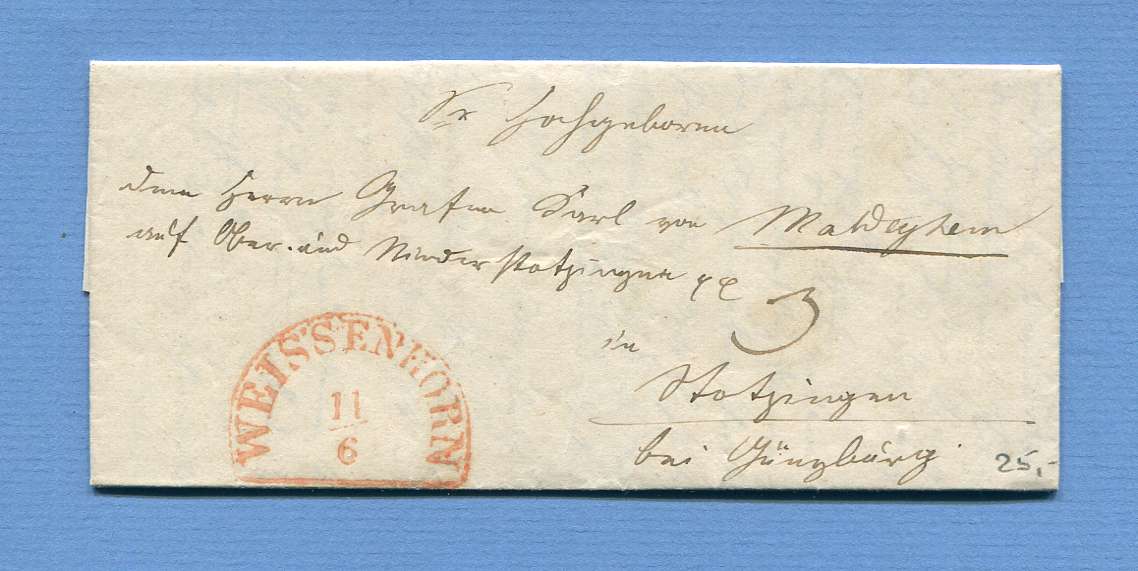 Sr Hochgeboren
dem Herrn Grafen Karl von Maldeghem
auf Ober- und Niederstotzingen
3
in
Stotzingen
bei Günzburg
WEISSENHORN
11
6
25,-